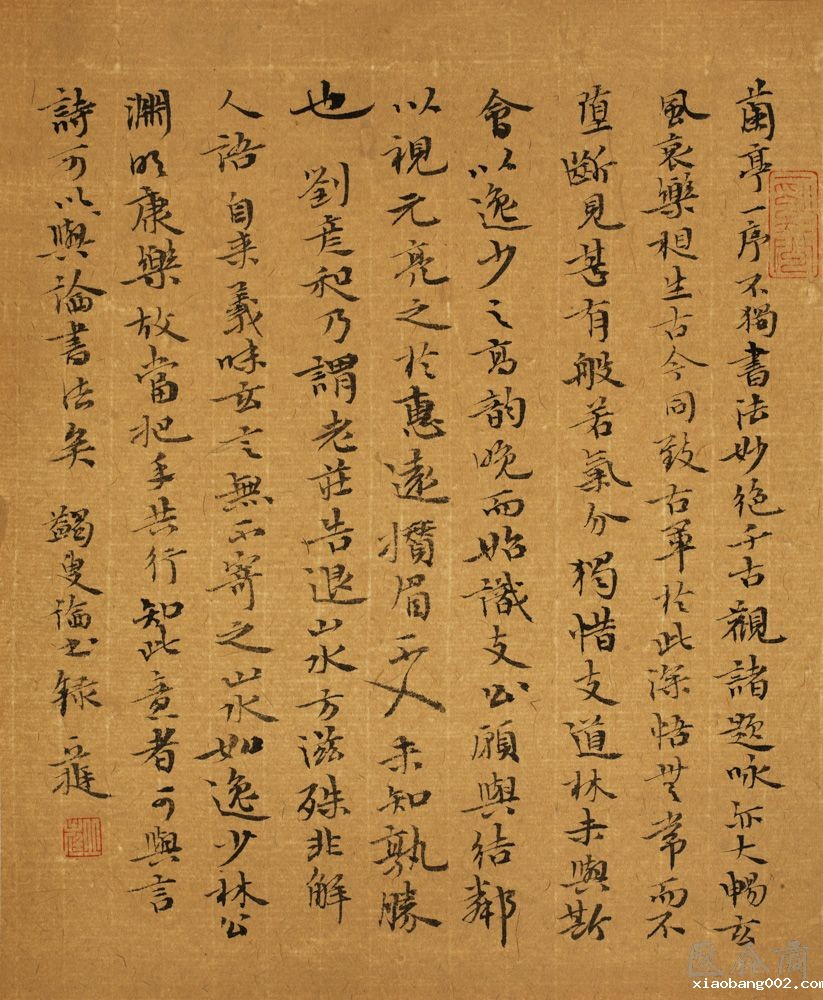 蘭亭一序不獨書法妙絕千古觀諸題咏亦大暢玄
風哀樂相生古今同致右軍於此深悟無常而不
墮斷見甚有般若氣分獨惜支道林未與斯
會以逸少之高韵晚而始識支公願與結鄰
以視元亮之於惠遠攢眉而入未知孰勝
也 劉彦和乃謂老莊告退山水方滋殊非解
人語 自來義味玄言無不寄之山水如逸少林公
淵明康樂故當把手共行知此意者可與言
詩可以與論書法矣 蠲叟論書 錄
xiaobang002.com